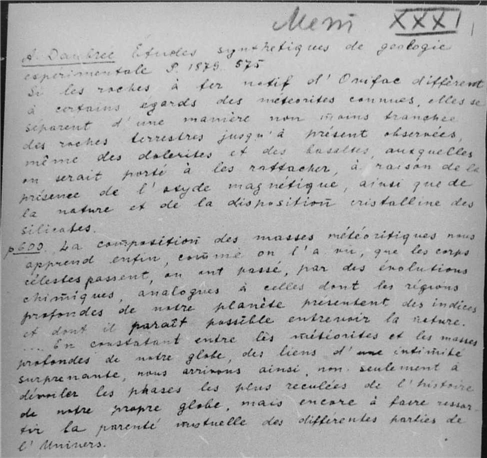 Meni XXXI
A. Daubrée Études synthétiques de géologie
expérimentale P. 1879. 575
Si les roches à fer natif d'Ovifac diffèrent
à certains égards des météorites connues, elles se
séparent d'une manière non moins tranchée
des roches terrestres jusqu'à présent observées,
même des dolérites et des basaltes, auxquelles
on serait porté à les rattacher, à raison de la
présence de l'oxyde magnétique, ainsi que de
la nature et de la disposition cristalline des
silicates.
p 600. La composition des masses météoritiques nous
apprend enfin, comme on l'a vu, que les corps
célestes passent, ou ont passé, par des évolutions
chimiques, analogues à celles dont les régions
profondes de notre planète présentent des indices
et dont il paraît possible entrevoir la nature.
.... En constatant entre les météorites et les masses
profondes de notre globe, des liens d'une intimité
surprenante, nous arrivons ainsi, non seulement à
dévoiler les phases les plus reculées de l'histoire
de notre propre globe, mais encore à faire ressor-
tir la parenté mutuelle des différentes parties de
l'Univers.